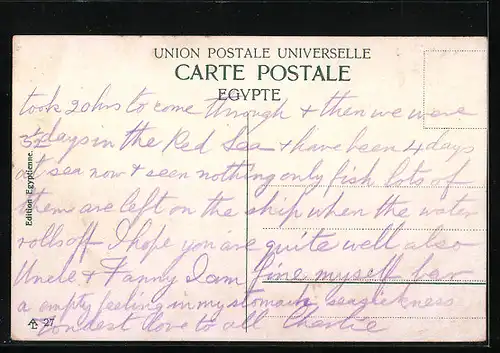 UNION POSTALE UNIVERSELLE
CARTE POSTALE
EGYPTE
took 20 hrs to come through & then we were
3½ days in the Red Sea & have been 4 days
at sea now & seen nothing only fish lots of
them are left on the ship when the water
rolls off I hope you are quite well also
Uncle & Fanny I am fine myself bar
a empty feeling in my stomain seasickness
Fondest love to all Charlie
Edition Egyptienne.
27